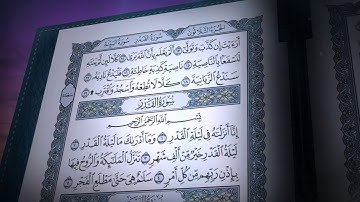 الجزء الثلاثون سورة القدر
أَرَءَيْتَ إِن كَذَّبَ وَتَوَلَّىٰٓ ١٣ أَلَمْ يَعْلَم بِأَنَّ ٱللَّهَ يَرَىٰ ١٤ كَلَّا لَئِن لَّمْ يَنتَهِ
لَنَسْفَعًۢا بِٱلنَّاصِيَةِ ١٥ نَاصِيَةٍ كَٰذِبَةٍ خَاطِئَةٍ ١٦ فَلْيَدْعُ نَادِيَهُۥ ١٧
سَنَدْعُ ٱلزَّبَانِيَةَ ١٨ كَلَّا لَا تُطِعْهُ وَٱسْجُدْ وَٱقْتَرِب ۩ ١٩
سُورَةُ القَدْرِ
بِسْمِ ٱللَّهِ ٱلرَّحْمَٰنِ ٱلرَّحِيمِ
إِنَّآ أَنزَلْنَٰهُ فِى لَيْلَةِ ٱلْقَدْرِ ١ وَمَآ أَدْرَىٰكَ مَا لَيْلَةُ ٱلْقَدْرِ ٢
لَيْلَةُ ٱلْقَدْرِ خَيْرٌ مِّنْ أَلْفِ شَهْرٍ ٣ تَنَزَّلُ ٱلْمَلَٰٓئِكَةُ وَٱلرُّوحُ فِيهَا
بِإِذْنِ رَبِّهِم مِّن كُلِّ أَمْرٍ ٤ سَلَٰمٌ هِىَ حَتَّىٰ مَطْلَعِ ٱلْفَجْرِ ٥